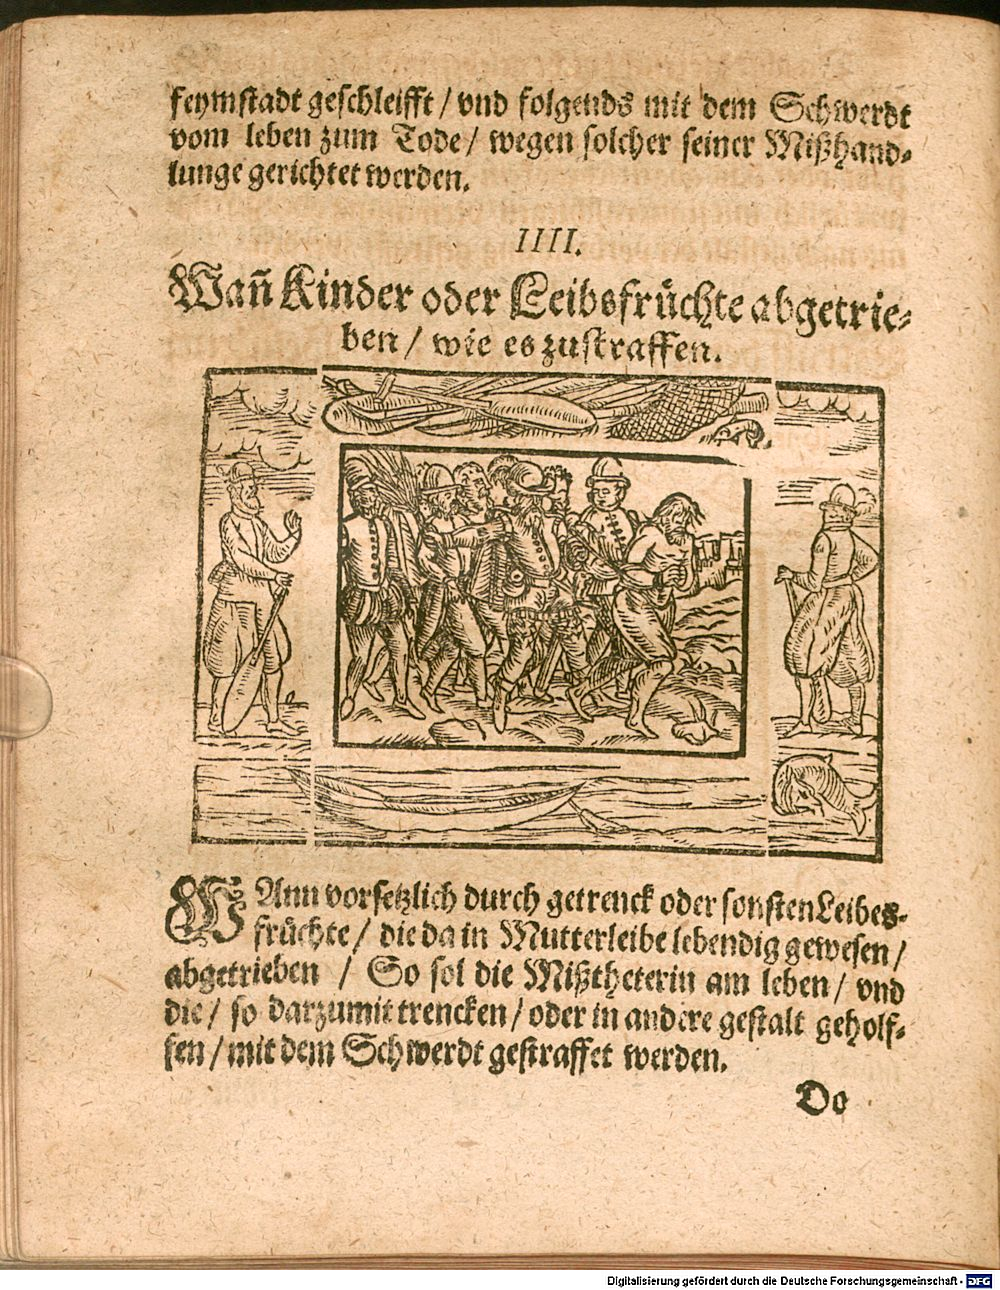 feymstadt geschleifft / vnd folgends mit dem Schwerdt
vom leben zum Tode / wegen solcher seiner Mißhand⸗
lunge gerichtet werden.
IIII.
Wañ Kinder oder Leibsfrüchte abgetrie⸗
ben / wie es zustraffen.
WAnn vorsetzlich durch getrenck oder sonsten Leibes⸗
früchte / die da in Mutterleibe lebendig gewesen /
abgetrieben / So sol die Mißtheterin am leben / vnd
die / so darzu mit trencken / oder in andere gestalt geholf⸗
fen / mit dem Schwerdt gestraffet werden.
Do
Digitalisierung gefördert durch die Deutsche Forschungsgemeinschaft - DFG